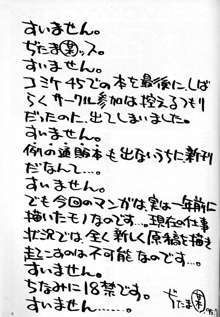 すいません。
ぢたま㊑ッス。
すいません。
コミケ45での本を最後に、しば
らくサークル参加は控えるつもり
だったのに、出てしまいました。
すいません。
例の通販本も出ないうちに新刊
だなんて…。
すいません。
でも今回のマンガは、実は一年前に
描いたモノなのです…。現在の仕事
状況では、全く新しく原稿を描き
起こすのは不可能なのです…。
すいません。
ちなみに18禁です。
すいません……。
ぢたま